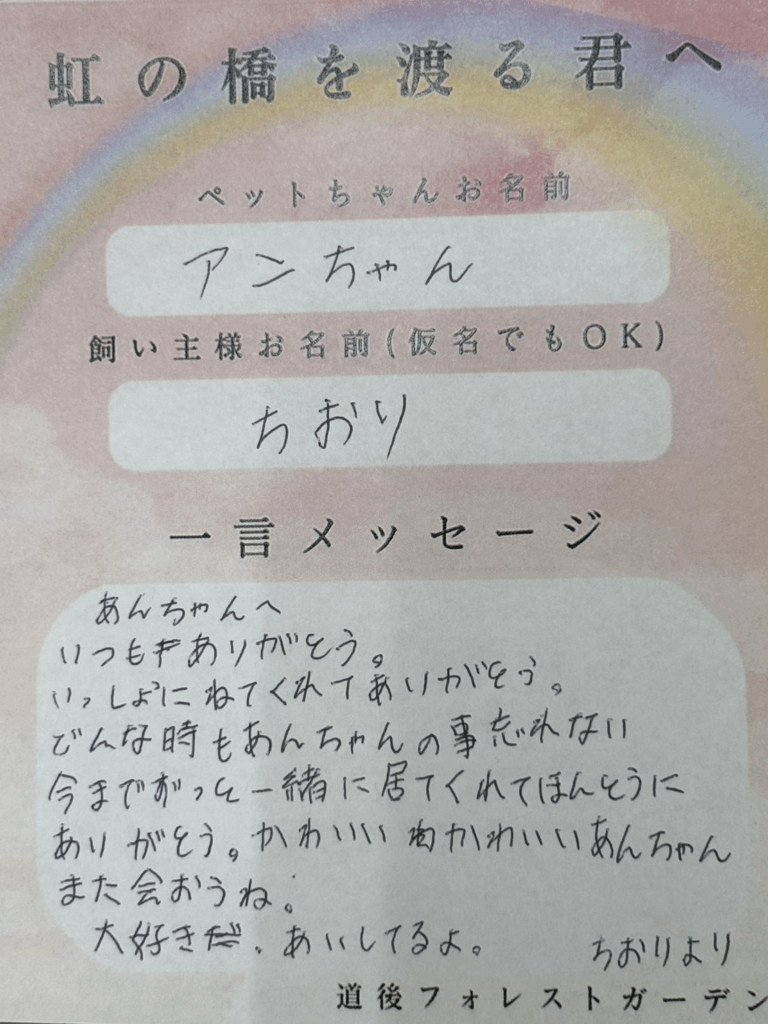 虹の橋を渡る君へ
ペットちゃんお名前
アンちゃん
飼い主様お名前(仮名でもOK)
ちおり
一言メッセージ
あんちゃんへ
いつもありがとう。
いっしょにねてくれてありがとう。
どんな時もあんちゃんの事忘れない
今までずっと一緒に居てくれてほんとうに
ありがとう。かわいいかわいいあんちゃん
また会おうね。
大好き。あいしてるよ。
ちおりより
道後フォレストガーデン